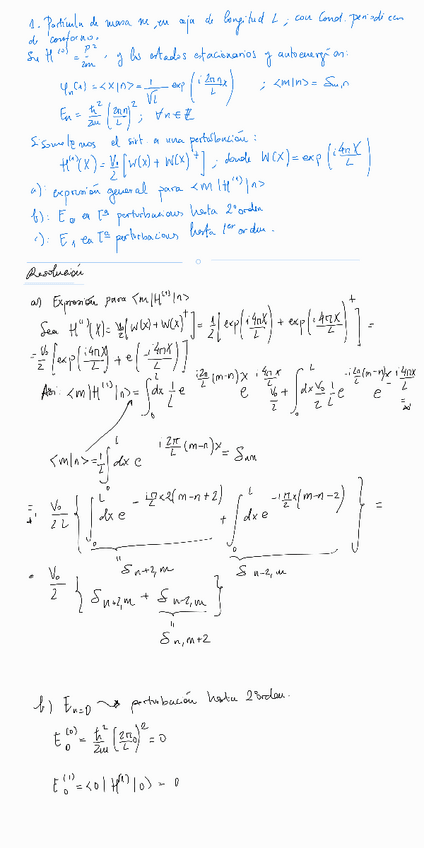 1. Partícula de masa m, en caja de longitud L, con Cond. periódicas
de contorno.
Su H^(0) = p²/2m, y los estados estacionarios y autoenergías:
φ_n(x) = <x|n> = 1/√L exp(i 2πn/L x) ; <m|n> = δ_m,n
E_n = ħ²/2m (2πn/L)² ; ∀n∈ℤ
Si sometemos el sist. a una perturbación:
H^(1)(X) = V₀/2 [W(X) + W(X)^+] ; donde W(X) = exp(i 4πX/L)
a): expresión general para <m|H^(1)|n>
b): E₀ en Tª perturbaciones hasta 2º orden
c): E₁ en Tª perturbaciones hasta 1er orden.
Resolución
a) Expresión para <m|H^(1)|n>
Sea H^(1)(X) = V₀/2 [W(X) + W(X)^+] = 1/2 [exp(i 4πX/L) + exp(i 4πX/L)^+] =
= V₀/2 [exp(i 4πX/L) + e(-i 4πX/L)]
Así: <m|H^(1)|n> = ∫₀^L dx 1/L e^(i 2π/L (m-n)x) e^(i 4πX/L) V₀/2 + ∫₀^L dx V₀/2 1/L e^(-i 2π/L (m-n)x) e^(-i 4πX/L) =
<m|n> = 1/L ∫₀^L dx e^(i 2π/L (m-n)x) = δ_nm
= V₀/2L { ∫₀^L dx e^(-i π/L x2(m-n+2)) + ∫₀^L dx e^(-i π/L x(m-n-2)) } =
δ_n+2,m δ_n-2,m
= V₀/2 { δ_n+2,m + δ_n-2,m }
δ_n,m+2
b) E_n=0 ⇝ perturbación hasta 2º orden.
E₀^(0) = ħ²/2m (2π/L 0)² = 0
E₀^(1) = <0|H^(1)|0> = 0